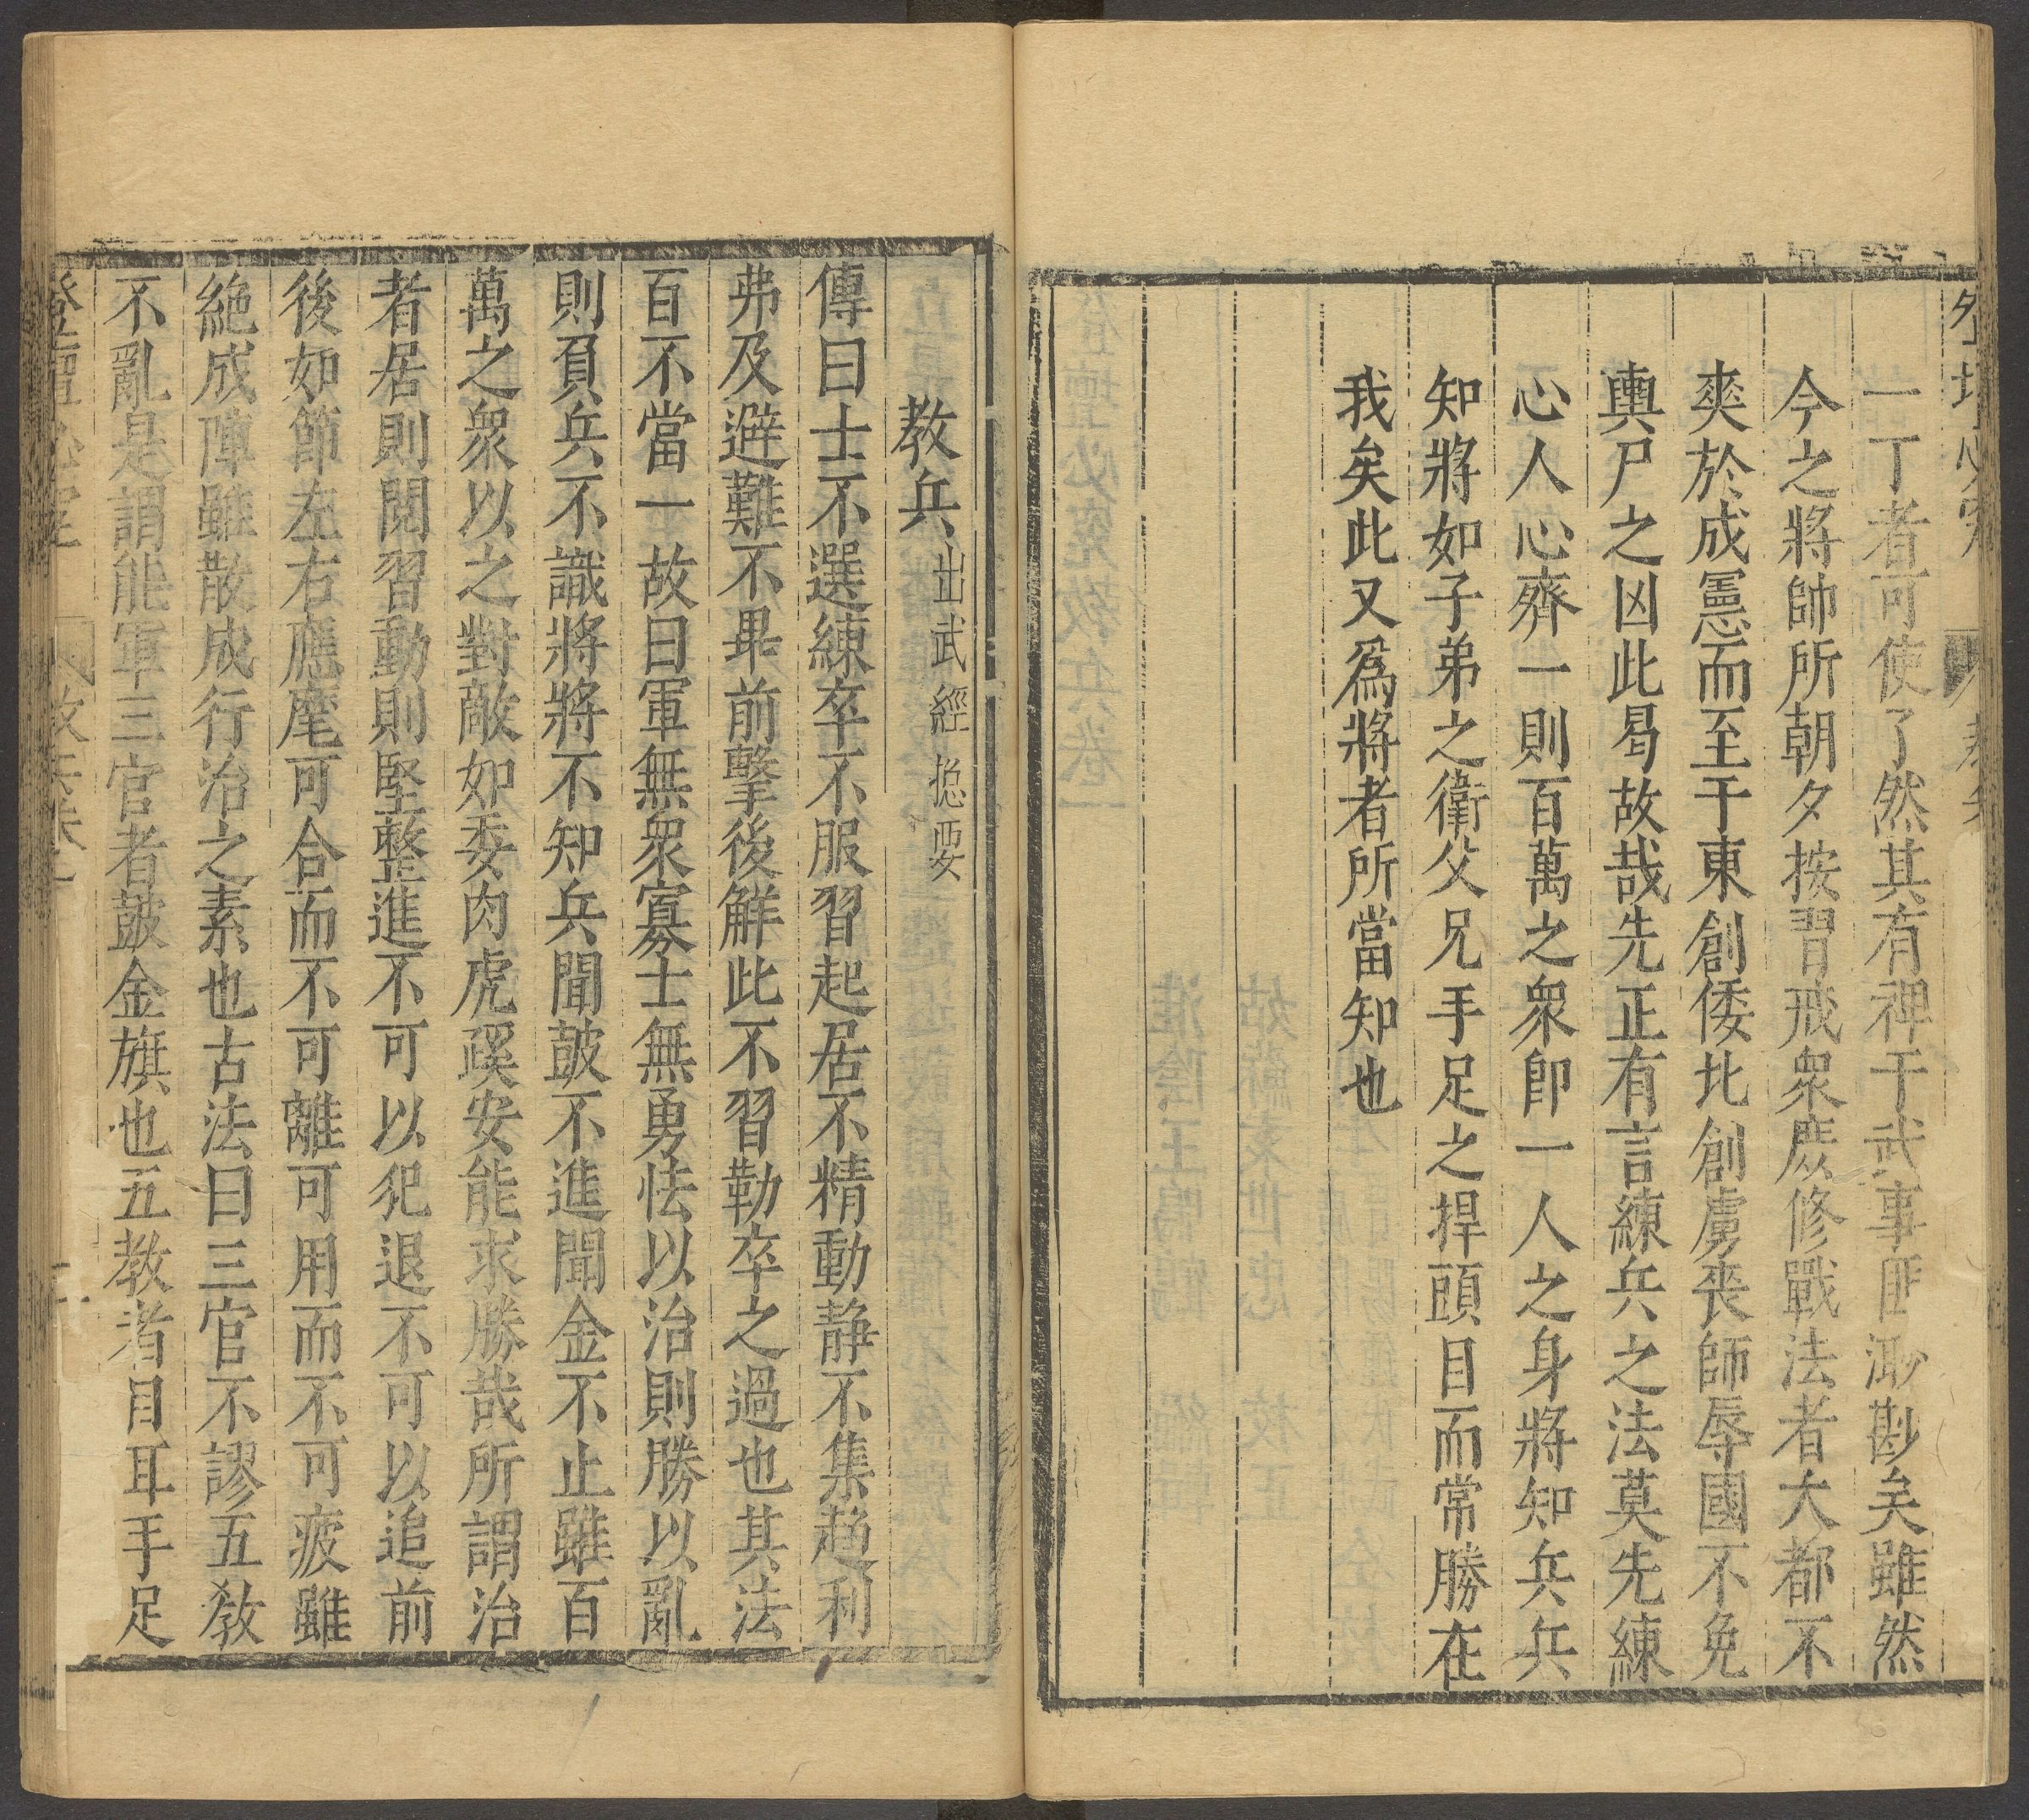 一丁者可使了然其有裨于武事匪淺尠矣雖然
今之將帥所朝夕按習戒衆庶修戰法者大都不
爽於成憲而至于東創倭北創虜喪師辱國不免
輿尸之凶此曷故哉先正有言練兵之法莫先練
心人心齊一則百萬之衆卽一人之身將知兵兵
知將如子弟之衛父兄手足之捍頭目而常勝在
我矣此又爲將者所當知也
教兵 出武經捴要
傳曰士不選練卒不服習起居不精動静不集趋利
弗及避難不畢前擊後解此不習勒卒之過也其法
百不當一故曰軍無衆寡士無勇怯以治則勝以亂
則負兵不識將將不知兵聞皷不進聞金不止雖百
萬之衆以之對敵如委肉虎蹊安能求勝哉所謂治
者居則閱習動則堅整進不可以犯退不可以追前
後如節左右應麾可合而不可離可用而不可疲雖
絶成陣雖散成行治之素也古法曰三官不謬五教
不亂是謂能軍三官者皷金旗也五教者目耳手足
登壇必究 教兵卷一